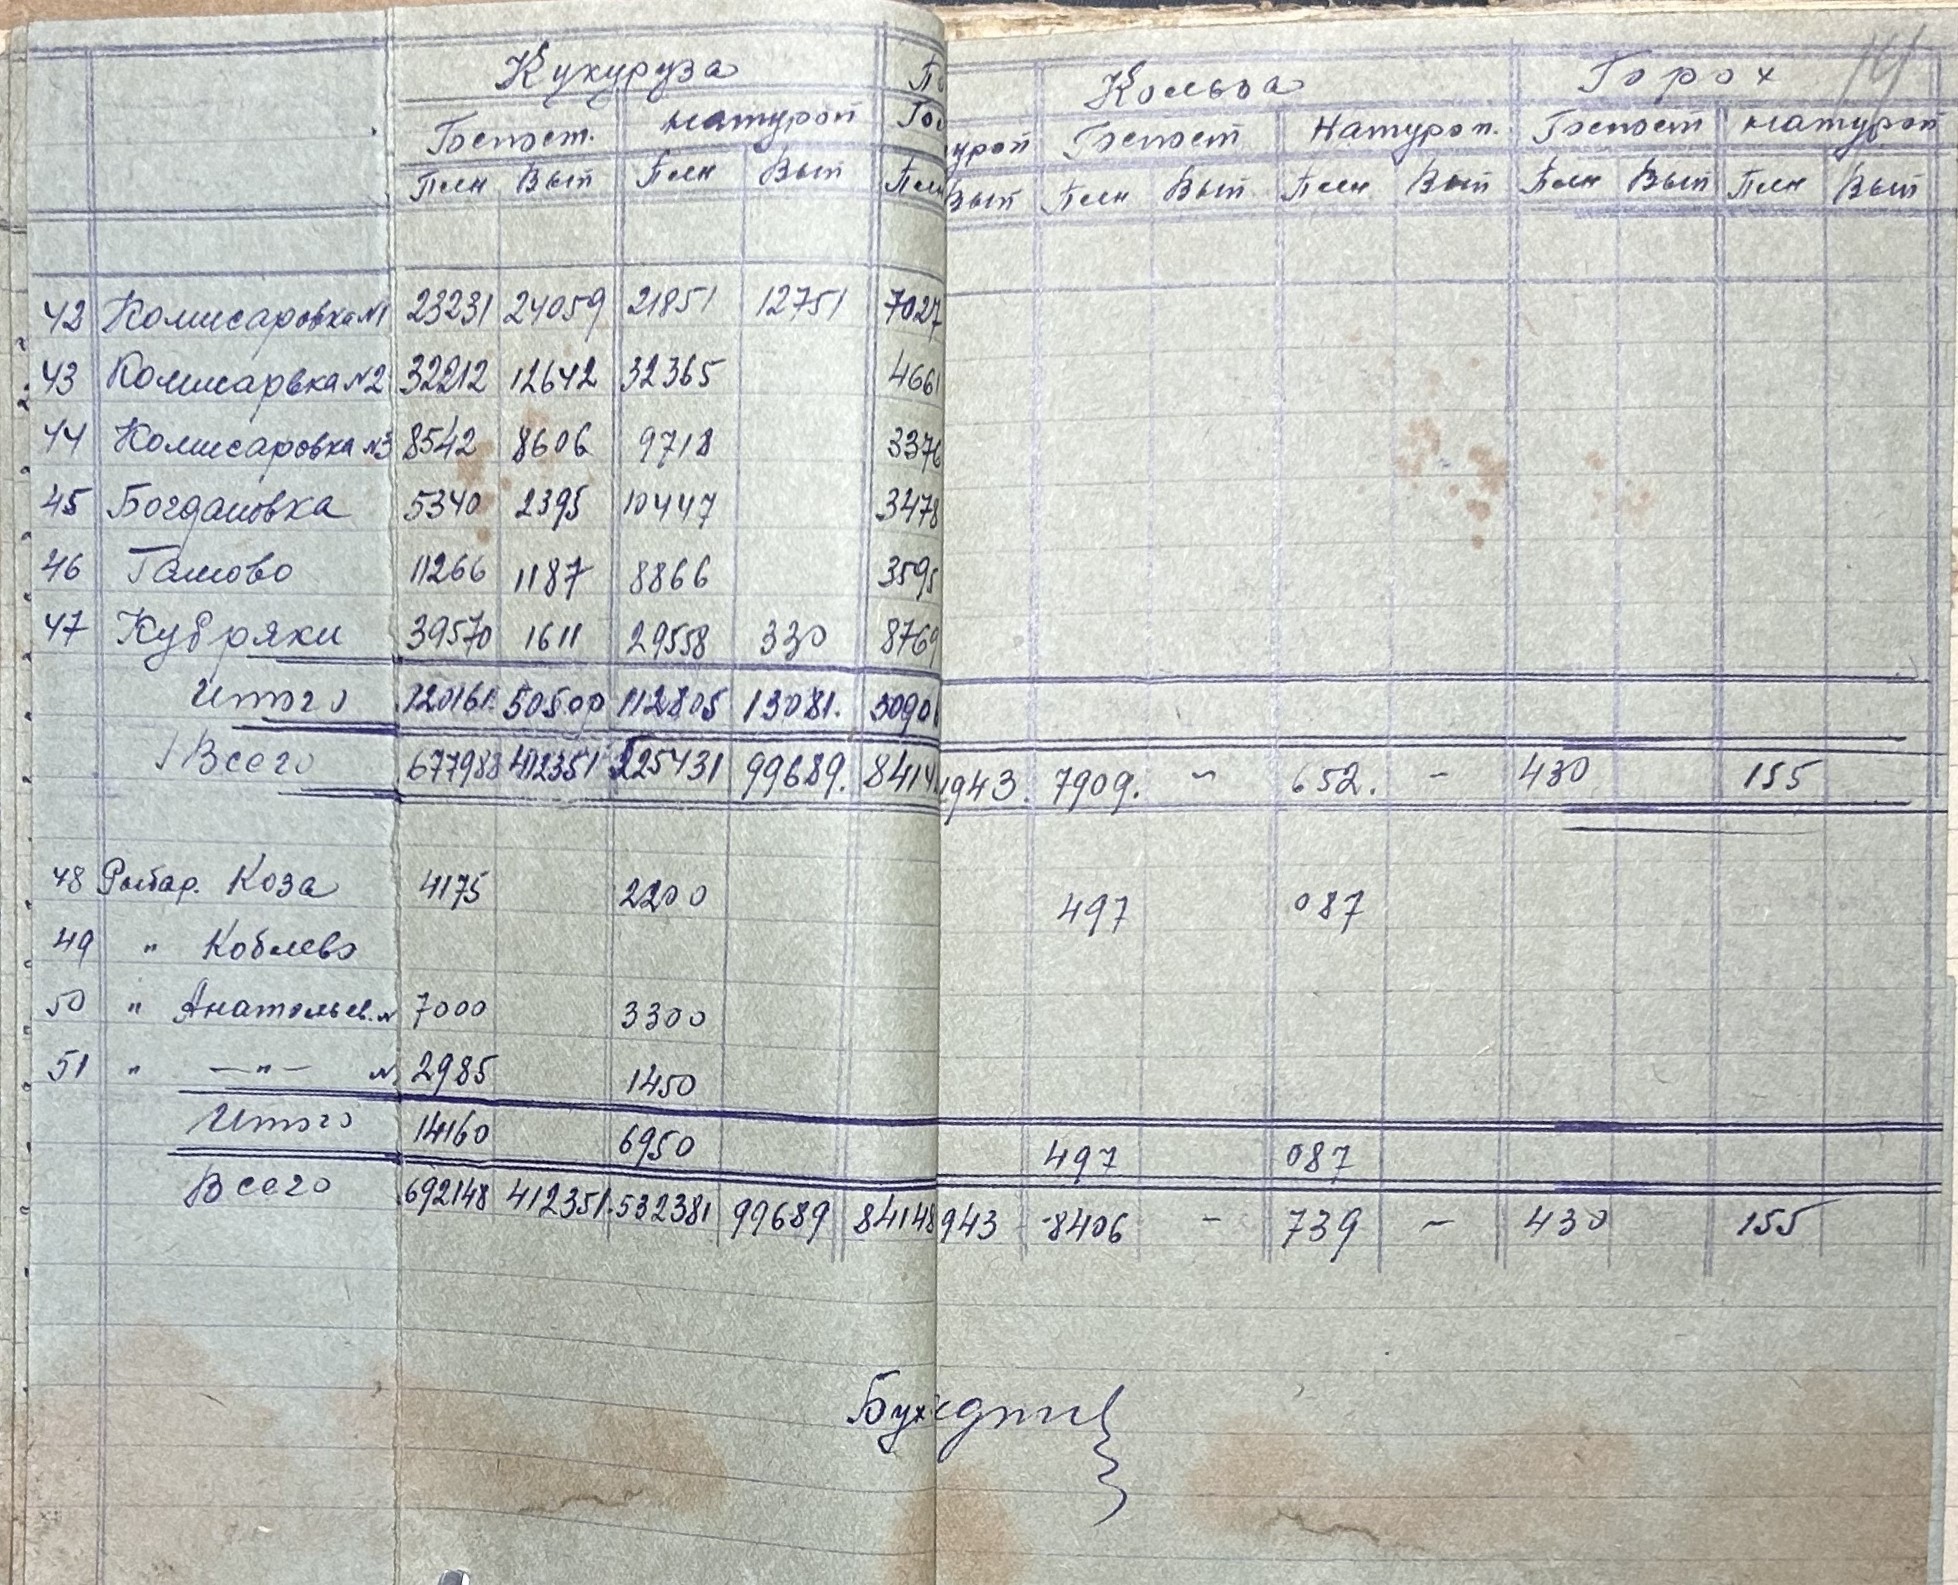 14
Кукуруза По Кользa Горох
Госпост. натуроп Гос уроп Госпост Натуроп. Госпост натуроп
Плн Вып Плн Вып Плн Вып Плн Вып Плн Вып Плн Вып Плн Вып
42 Комисаровка №1 23231 24059 21851 12751 7027
43 Комисаровка №2 32212 12642 32365 4661
44 Комисаровка №3 8542 8606 9718 3376
45 Богдановка 5340 2395 10447 3478
46 Гамово 11266 1187 8866 3595
47 Кубряки 39570 1611 29558 330 8769
Итого 120161. 50500 112805 13081. 3090
Всего 677988 412351 525431 99689. 8414 943. 7909. - 652. - 430 155
48 Рыбар. Коза 4175 2200 497 087
49 " Коблево
50 " Анатольев. № 7000 3300
51 " —"— № 2985 1450
Итого 14160 6950 497 087
Всего 692148 412351. 532381 99689 84148 943 8406 - 739 - 430 155